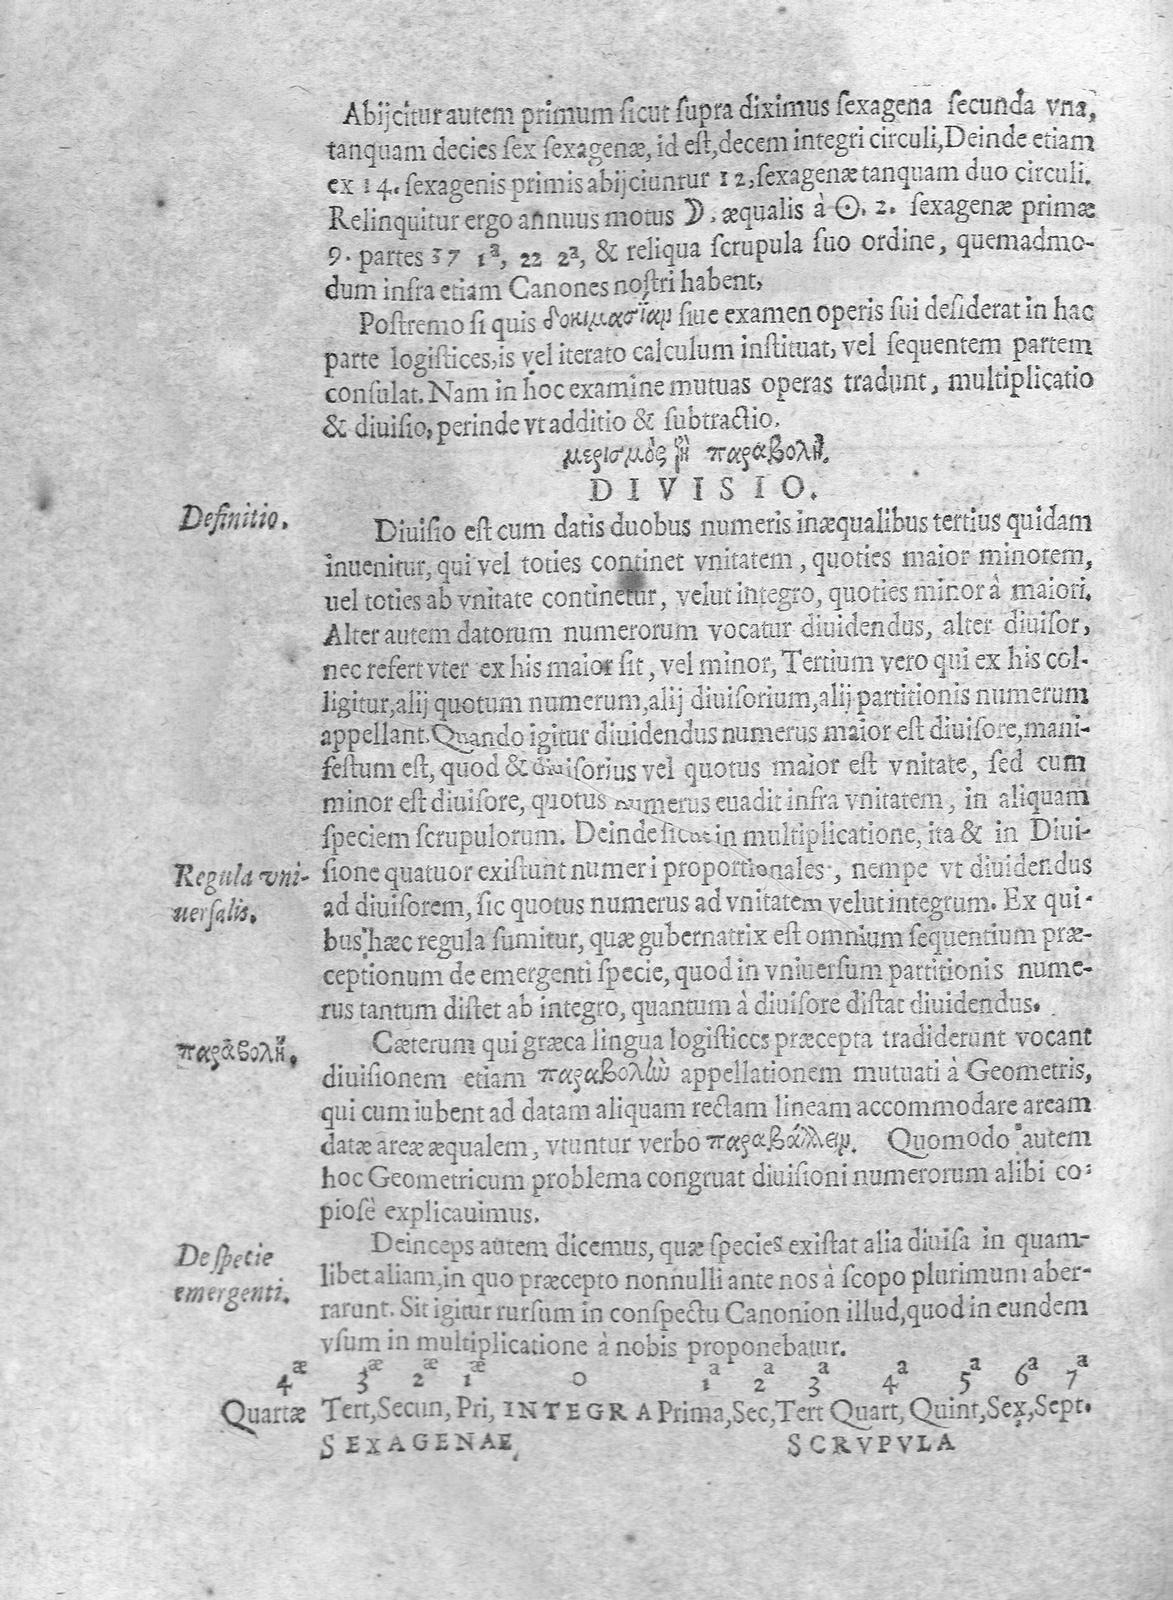 Abijcitur autem primum ſicut ſupra diximus ſexagena ſecunda vna,
tanquam decies ſex ſexagenæ, id eſt, decem integri circuli, Deinde etiam
ex 14. ſexagenis primis abijciuntur 12, ſexagenæ tanquam duo circuli.
Relinquitur ergo annuus motus ☽. æqualis à ☉. 2. ſexagenæ primæ
9. partes 37 1ª, 22 2ª, & reliqua ſcrupula ſuo ordine, quemadmo-
dum infra etiam Canones noſtri habent,
Poſtremo ſi quis δοκιμασίαν ſiue examen operis ſui deſiderat in hac
parte logiſtices, is vel iterato calculum inſtituat, vel ſequentem partem
conſulat. Nam in hoc examine mutuas operas tradunt, multiplicatio
& diuiſio, perinde vt additio & ſubtractio.
μερισμὸς ἢ παραβολὴ.
DIVISIO.
Definitio.
Diuiſio eſt cum datis duobus numeris inæqualibus tertius quidam
inuenitur, qui vel toties continet vnitatem, quoties maior minorem,
uel toties ab vnitate continetur, velut integro, quoties minor à maiori.
Alter autem datorum numerorum vocatur diuidendus, alter diuiſor,
nec refert vter ex his maior ſit, vel minor, Tertium vero qui ex his col-
ligitur, alij quotum numerum, alij diuiſorium, alij partitionis numerum
appellant. Quando igitur diuidendus numerus maior eſt diuiſore, mani-
feſtum eſt, quod & diuiſorius vel quotus maior eſt vnitate, ſed cum
minor eſt diuiſore, quotus numerus euadit infra vnitatem, in aliquam
ſpeciem ſcrupulorum. Deinde ſicut in multiplicatione, ita & in Diui-
Regula vni-
uerſalis.
ſione quatuor exiſtunt numeri proportionales, nempe vt diuidendus
ad diuiſorem, ſic quotus numerus ad vnitatem velut integrum. Ex qui-
bus hæc regula ſumitur, quæ gubernatrix eſt omnium ſequentium præ-
ceptionum de emergenti ſpecie, quod in vniuerſum partitionis nume-
rus tantum diſtet ab integro, quantum à diuiſore diſtat diuidendus.
παραβολὴ.
Cæterum qui græca lingua logiſtices præcepta tradiderunt vocant
diuiſionem etiam παραβολὴν appellationem mutuati à Geometris,
qui cum iubent ad datam aliquam rectam lineam accommodare aream
datæ areæ æqualem, vtuntur verbo παραβάλλειν. Quomodo autem
hoc Geometricum problema congruat diuiſioni numerorum alibi co-
pioſè explicauimus.
De ſpecie
emergenti.
Deinceps autem dicemus, quæ ſpecies exiſtat alia diuiſa in quam-
libet aliam, in quo præcepto nonnulli ante nos à ſcopo plurimum aber-
rarunt. Sit igitur rurſum in conſpectu Canonion illud, quod in eundem
vſum in multiplicatione à nobis proponebatur.
4æ 3æ 2æ 1æ 0 1a 2a 3a 4a 5a 6a 7a
Quartæ Tert, Secun, Pri, INTEGRA Prima, Sec, Tert Quart, Quint, Sex, Sept.
SEXAGENAE, SCRVPVLA